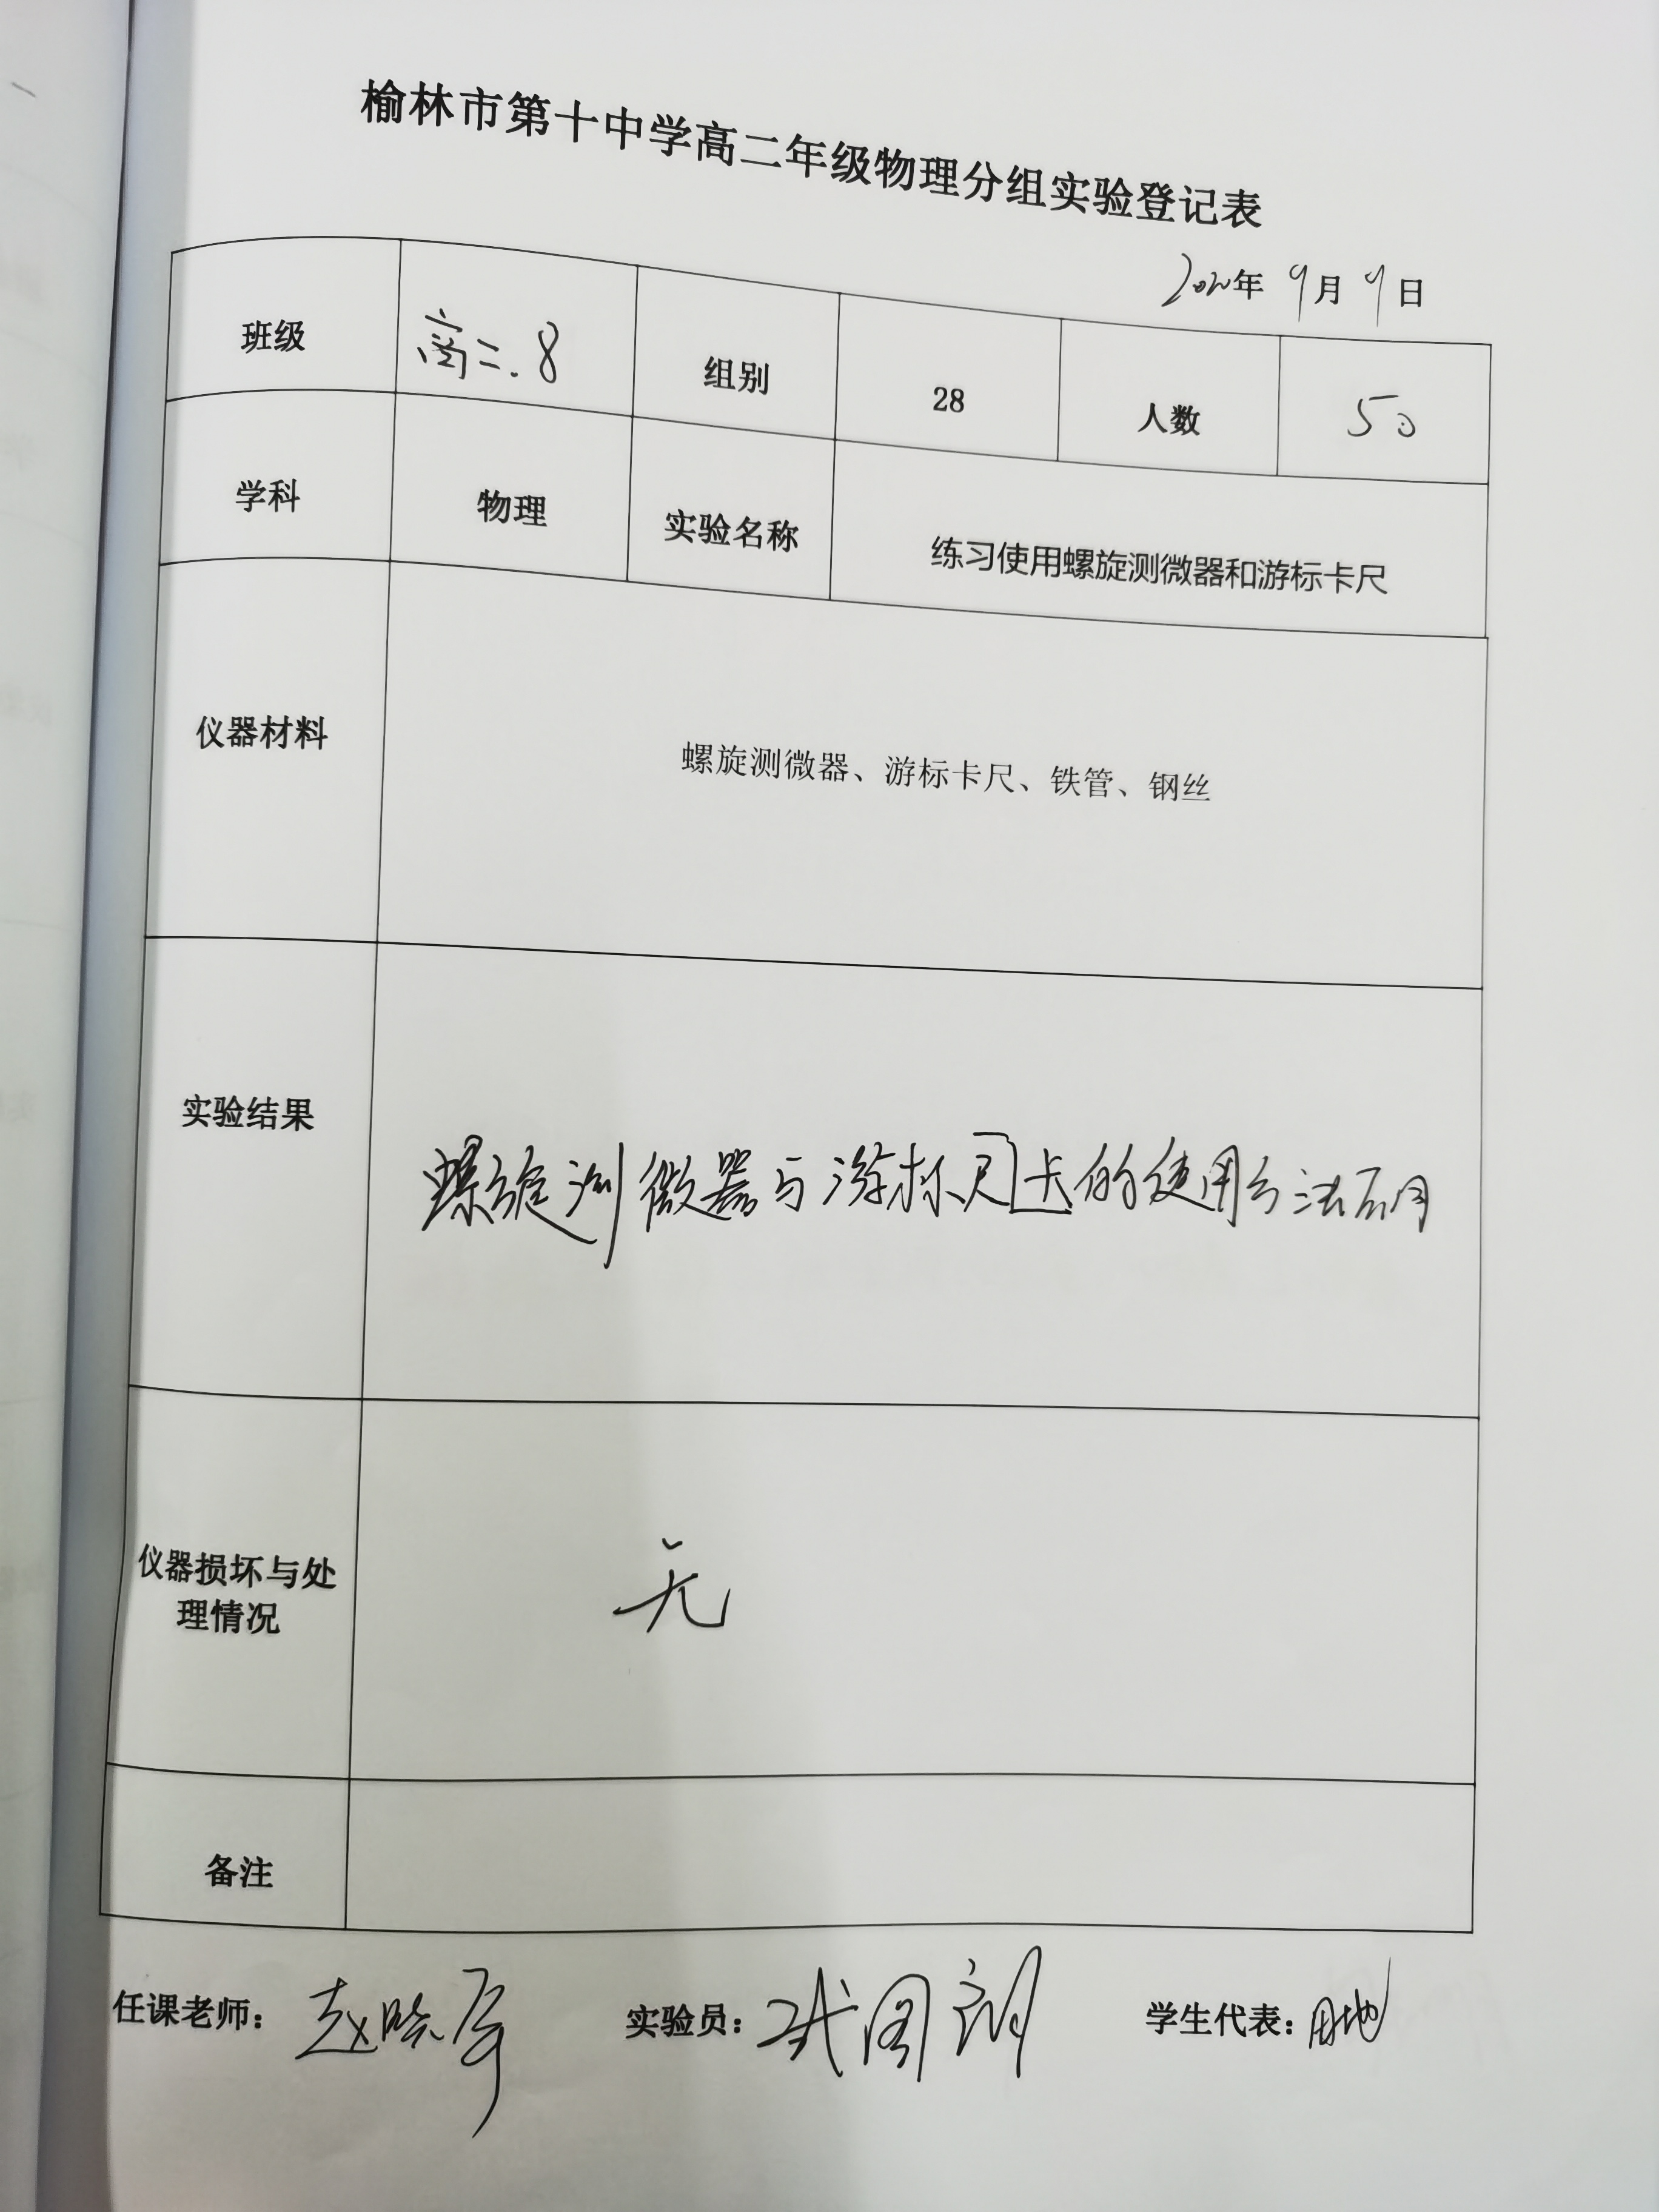 榆林市第十中学高二年级物理分组实验登记表
年 9月 9日
班级 高二.8 组别 28 人数 50
学科 物理 实验名称 练习使用螺旋测微器和游标卡尺
仪器材料 螺旋测微器、游标卡尺、铁管、钢丝
实验结果 螺旋测微器与游标尺卡的使用方法不同
仪器损坏与处
理情况
无
备注
任课老师： 赵晓 实验员： 学生代表：